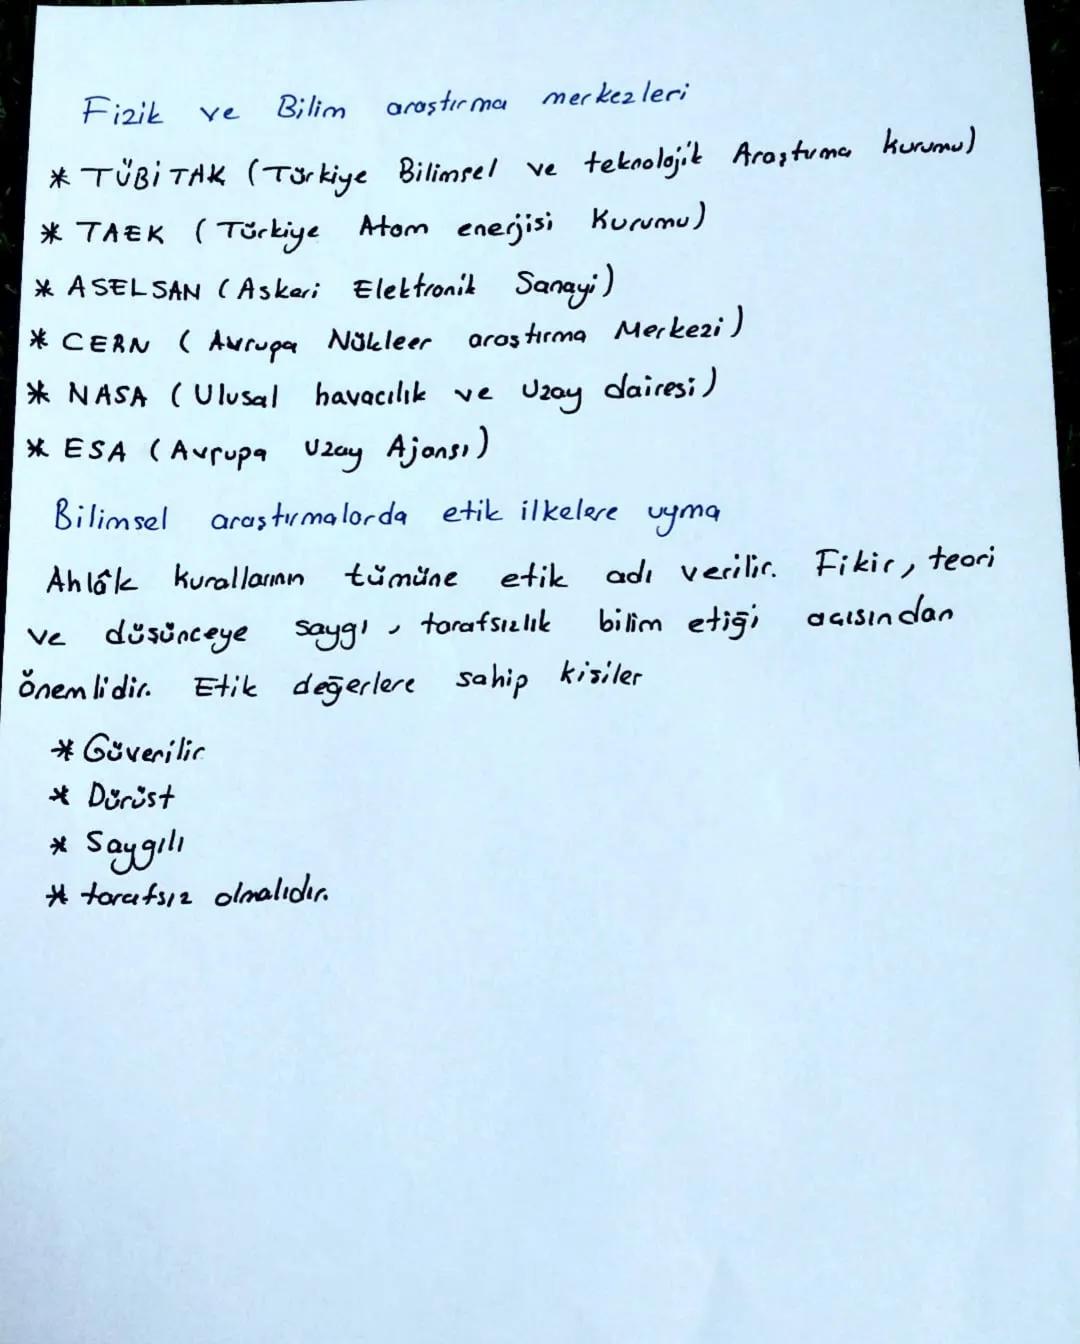 Fizik ve Bilim araştırma merkezleri
* TÜBİTAK (Türkiye Bilimsel ve teknolojik Araştırma Kurumu)
* TAEK (Türkiye Atom enerjisi Kurumu)
* ASELSAN (Askeri Elektronik Sanayi)
* CERN (Avrupa Nükleer araştırma Merkezi)
* NASA (Ulusal havacılık ve Uzay dairesi)
* ESA (Avrupa Uzay Ajansı)
Bilimsel araştırmalarda etik ilkelere uyma
Ahlâk kurallarının tümüne etik adı verilir. Fikir, teori
ve düşünceye saygı, tarafsızlık bilim etiği açısından
önemlidir. Etik değerlere sahip kişiler
* Güvenilir
* Dürüst
* Saygılı
* tarafsız olmalıdır.